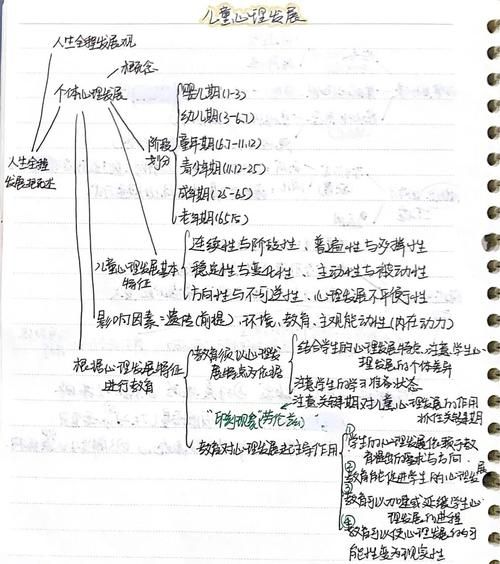 儿童心理发展
人生全程发展观
概念
个体心理发展
婴儿期(1-3)
幼儿期(3-6.7)
童年期(6.7-11.12)
阶段
划分
青少年期(11.12-25)
成年期(25-65)
老年期(65后)
人生全程
发展概述
连续性与阶段性,普遍性与多样性
儿童心理发展基本
特征
稳定性与变化性 主动性与被动性
方向性与不可逆性,心理发展不平衡性
影响因素:遗传(前提),环境、教育、主观能动性(内在动力)
根据心理发展特征
进行教育
教育须以心理发
展特点为依据
结合学生的心理发展特点,注意学生心
理发展的个体差异
注意学生的学习准备状态
注意关键期对儿童心理发展的作用
抓住关键期
"印刻现象"(劳伦兹)
教育对心理发展起主导作用
①
学生的心理发展依赖于教
育提出的要求与方向.
②
教育能促进学生的心理发展
③
教育可以加速或延缓学生心
理发展的进程
④
教育可以使心理发展的可
能性变为现实性